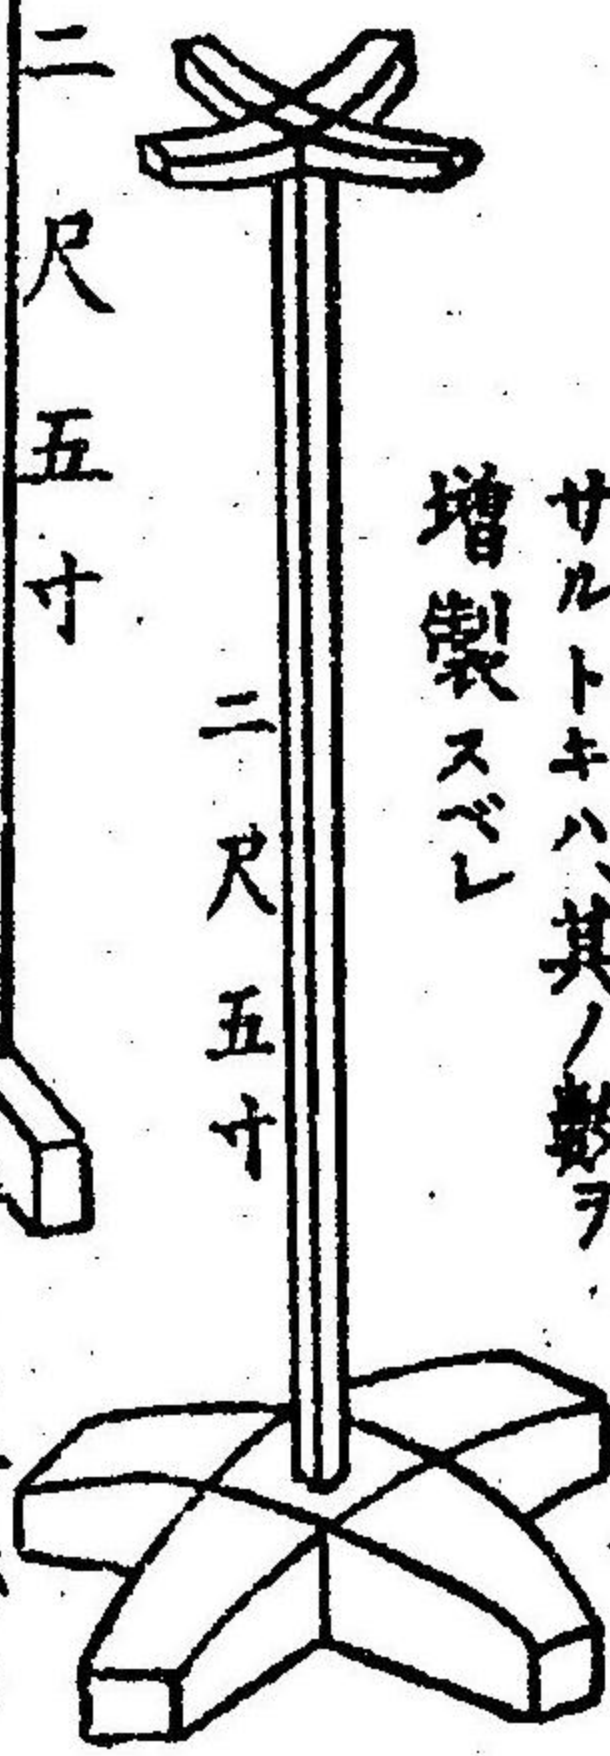 サルトキハ、其ノ數ヲ
增製スベシ
二尺五寸
二尺五寸